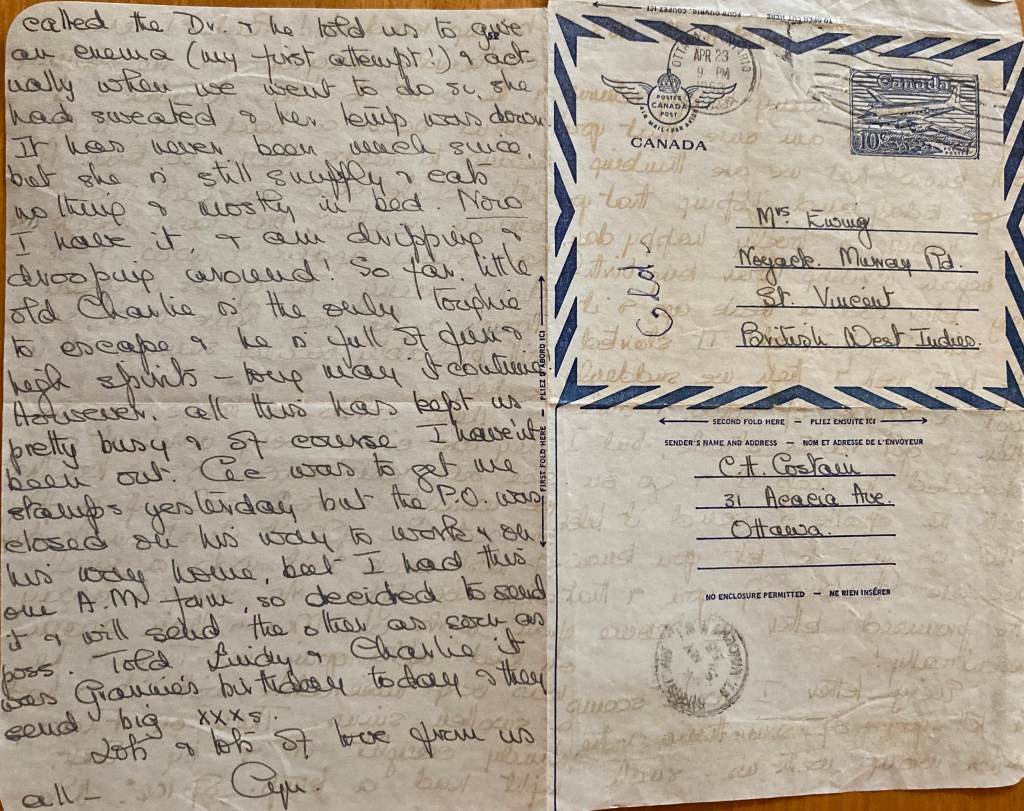 called the Dr. & he told us to give
an enema (my first attempt!) & act-
ually when we went to do so, she
had sweated & her temp was down
It has never been much since,
but she is still snuffly & eats
nothing & mostly in bed. Now
I have it, & am dripping &
drooping around! So far, little
old Charlie is the only
to escape & he is full of fun &
high spirits – long may it continue
However, all this has kept us
pretty busy & of course I haven't
been out. Cec was to get me
stamps yesterday but the P.O. was
closed on his way to work & on
his way home, but I had this
one A.M. form, so decided to send
it & will send the other as soon as
poss. Told Lindy & Charlie it
was Grannie's birthday today & they
send big xxxs.
Lots & lots of love from us
all – Cyn.
FIRST FOLD HERE — PLIEZ D'ABORD ICI
TO OPEN CUT HERE
POUR OUVRIR, COUPEZ ICI
OTTAWA ONTARIO
APR 23
9 PM
POSTES
CANADA
POST
AIR MAIL • PAR AVION
CANADA
Canada
10¢
Mrs. Ewing
Noyack. Murray Rd.
St. Vincent
British West Indies.
SECOND FOLD HERE — PLIEZ ENSUITE ICI
SENDER'S NAME AND ADDRESS — NOM ET ADRESSE DE L'ENVOYEUR
C.H. Costain
31 Acacia Ave.
Ottawa.
NO ENCLOSURE PERMITTED — NE RIEN INSÉRER